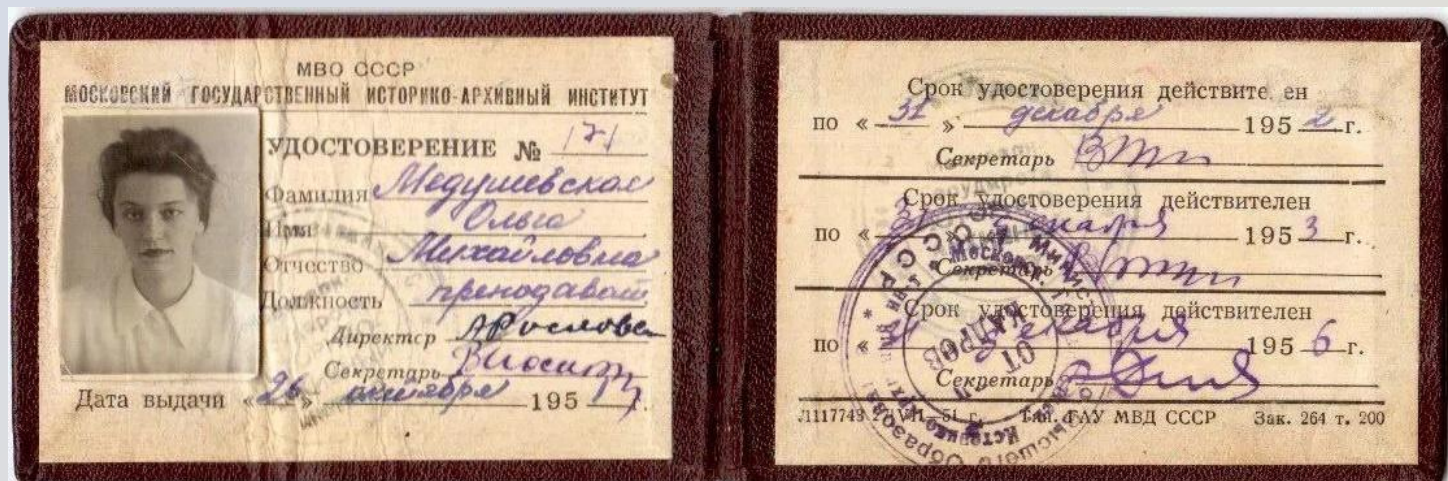 МВО СССР
МОСКОВСКИЙ ГОСУДАРСТВЕННЫЙ ИСТОРИКО-АРХИВНЫЙ ИНСТИТУТ
УДОСТОВЕРЕНИЕ № 171
Фамилия Медушевская
Имя Ольга
Отчество Михайловна
Должность преподават
Директор
Секретарь
Дата выдачи «26» октября 195 г.
Срок удостоверения действите ен
по «31» декабря 1952 г.
Секретарь
Срок удостоверения действителен
по «31» декабря 1953 г.
Секретарь
Срок удостоверения действителен
по « декабря 1956 г.
Секретарь
Л117749 VII—51 г. Тип. ГАУ МВД СССР Зак. 264 т. 200
ОТДЕЛ КАДРОВ